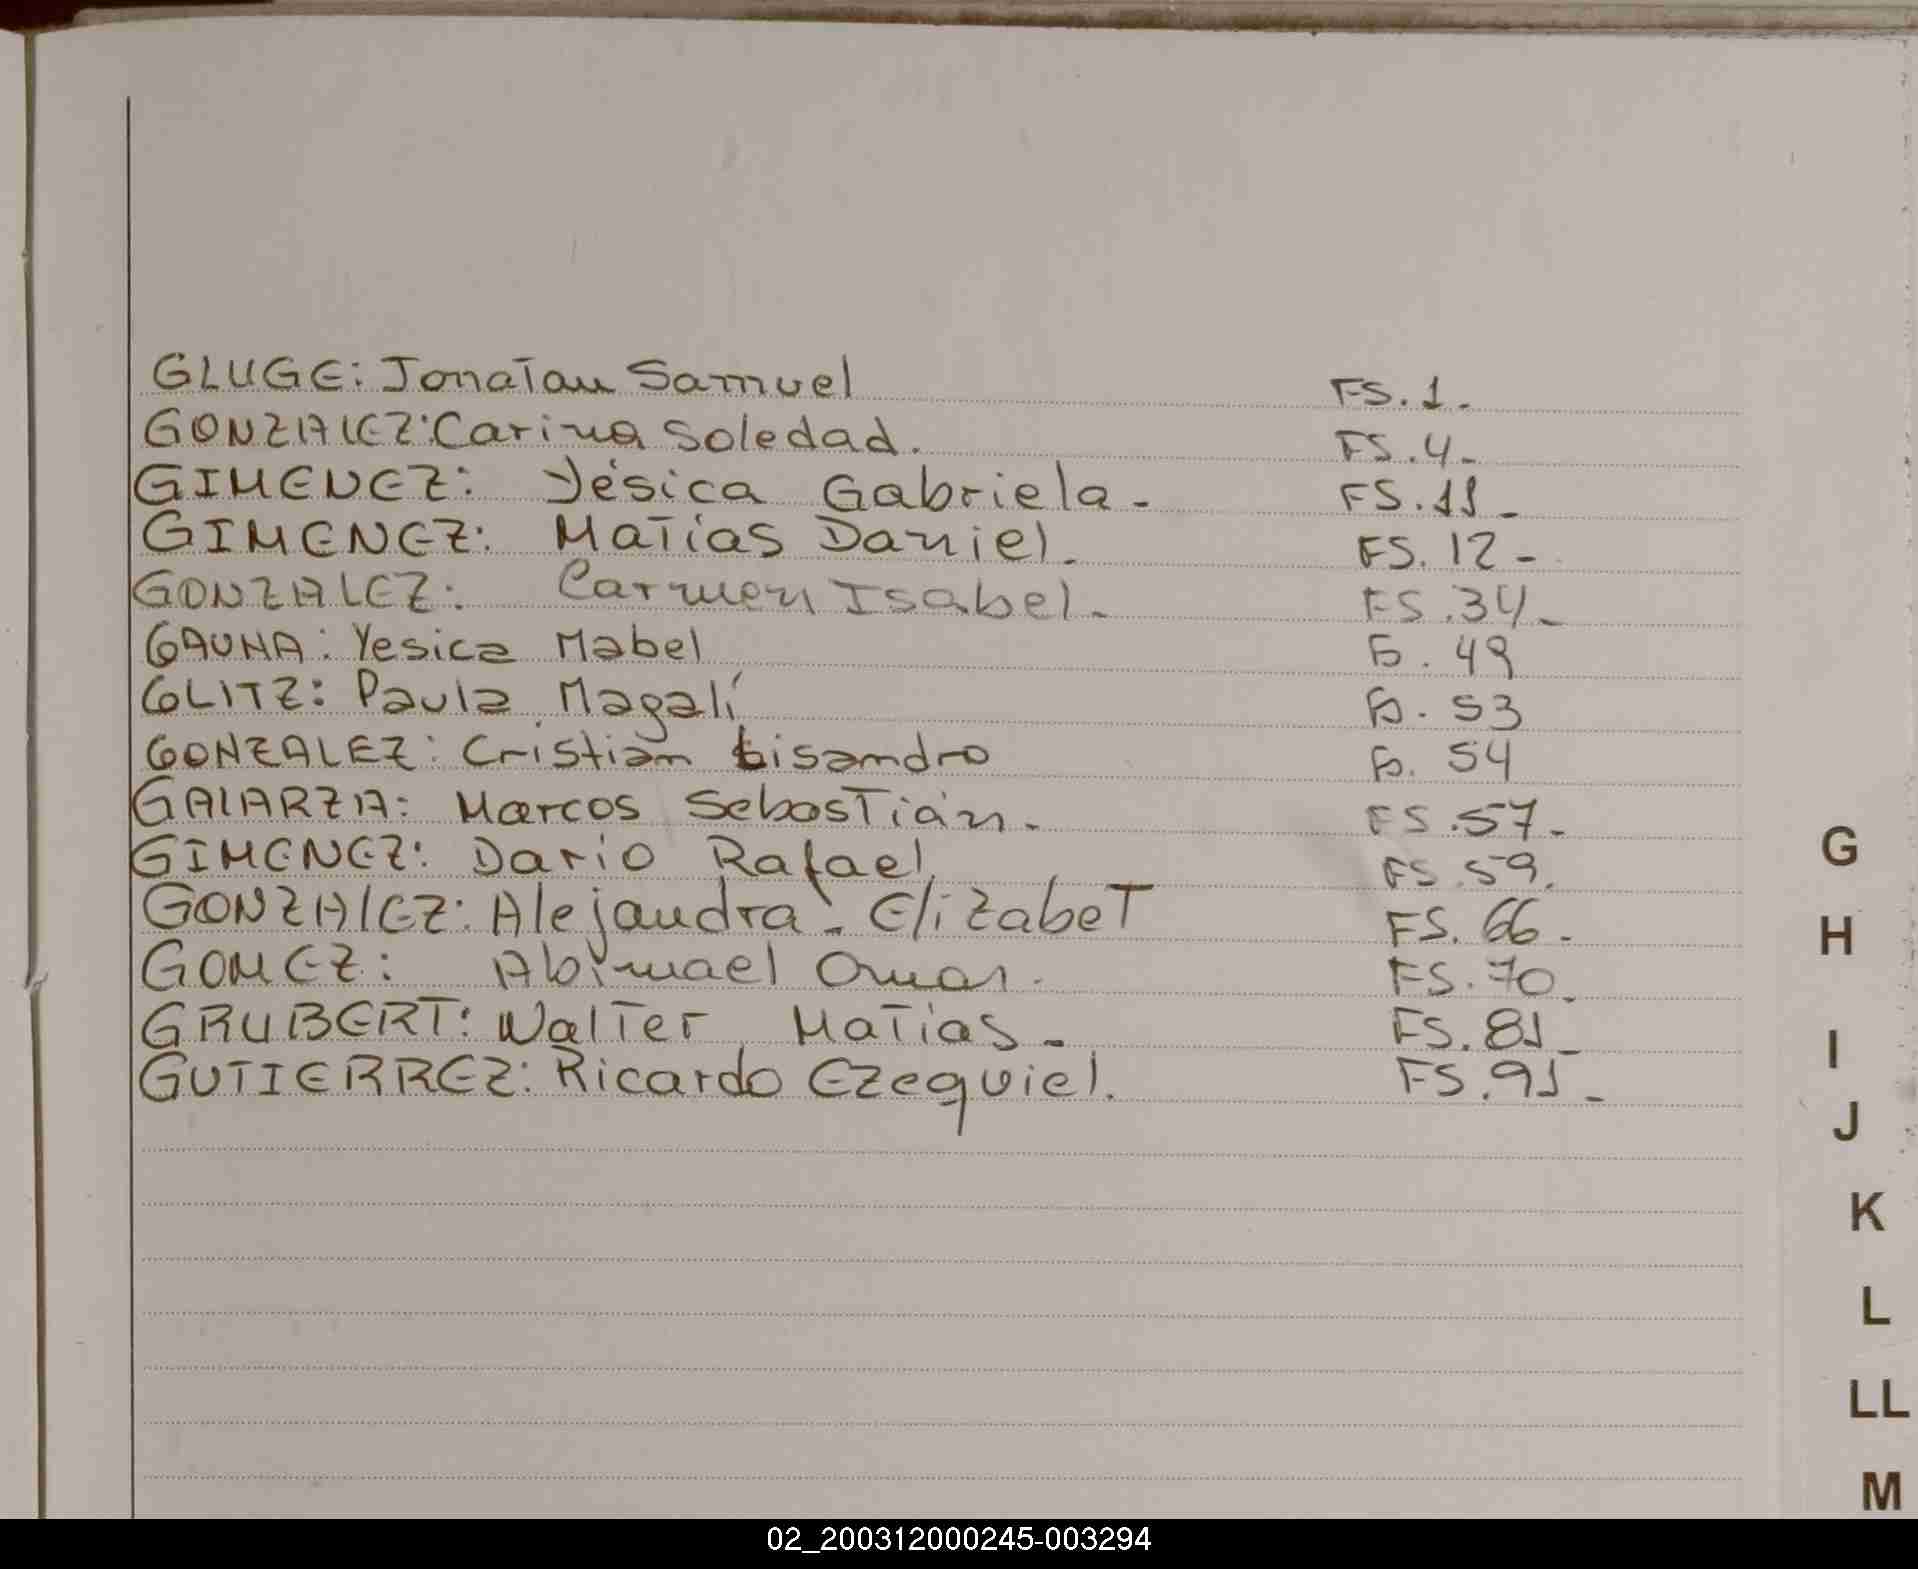 GLUGE: Jonatan Samuel FS. 1.
GONZALEZ: Carina Soledad. FS. 4.
GIMENEZ: Yésica Gabriela. FS. 11.
GIMENEZ: Matías Daniel. FS. 12.
GONZALEZ: Carmen Isabel. FS. 34.
GAUNA: Yesica Mabel Fs. 49
GLITZ: Paula Magalí Fs. 53
GONZALEZ: Cristian Lisandro Fs. 54
GALARZA: Marcos Sebastián. FS. 57.
GIMENEZ: Dario Rafael. FS. 59.
GONZALEZ: Alejandra. Elizabet FS. 66.
GOMEZ: Abimael Omar. FS. 70.
GRUBERT: Walter Matias. FS. 81.
GUTIERREZ: Ricardo Ezequiel. FS. 91.
G
H
I
J
K
L
LL
M
02_200312000245-003294